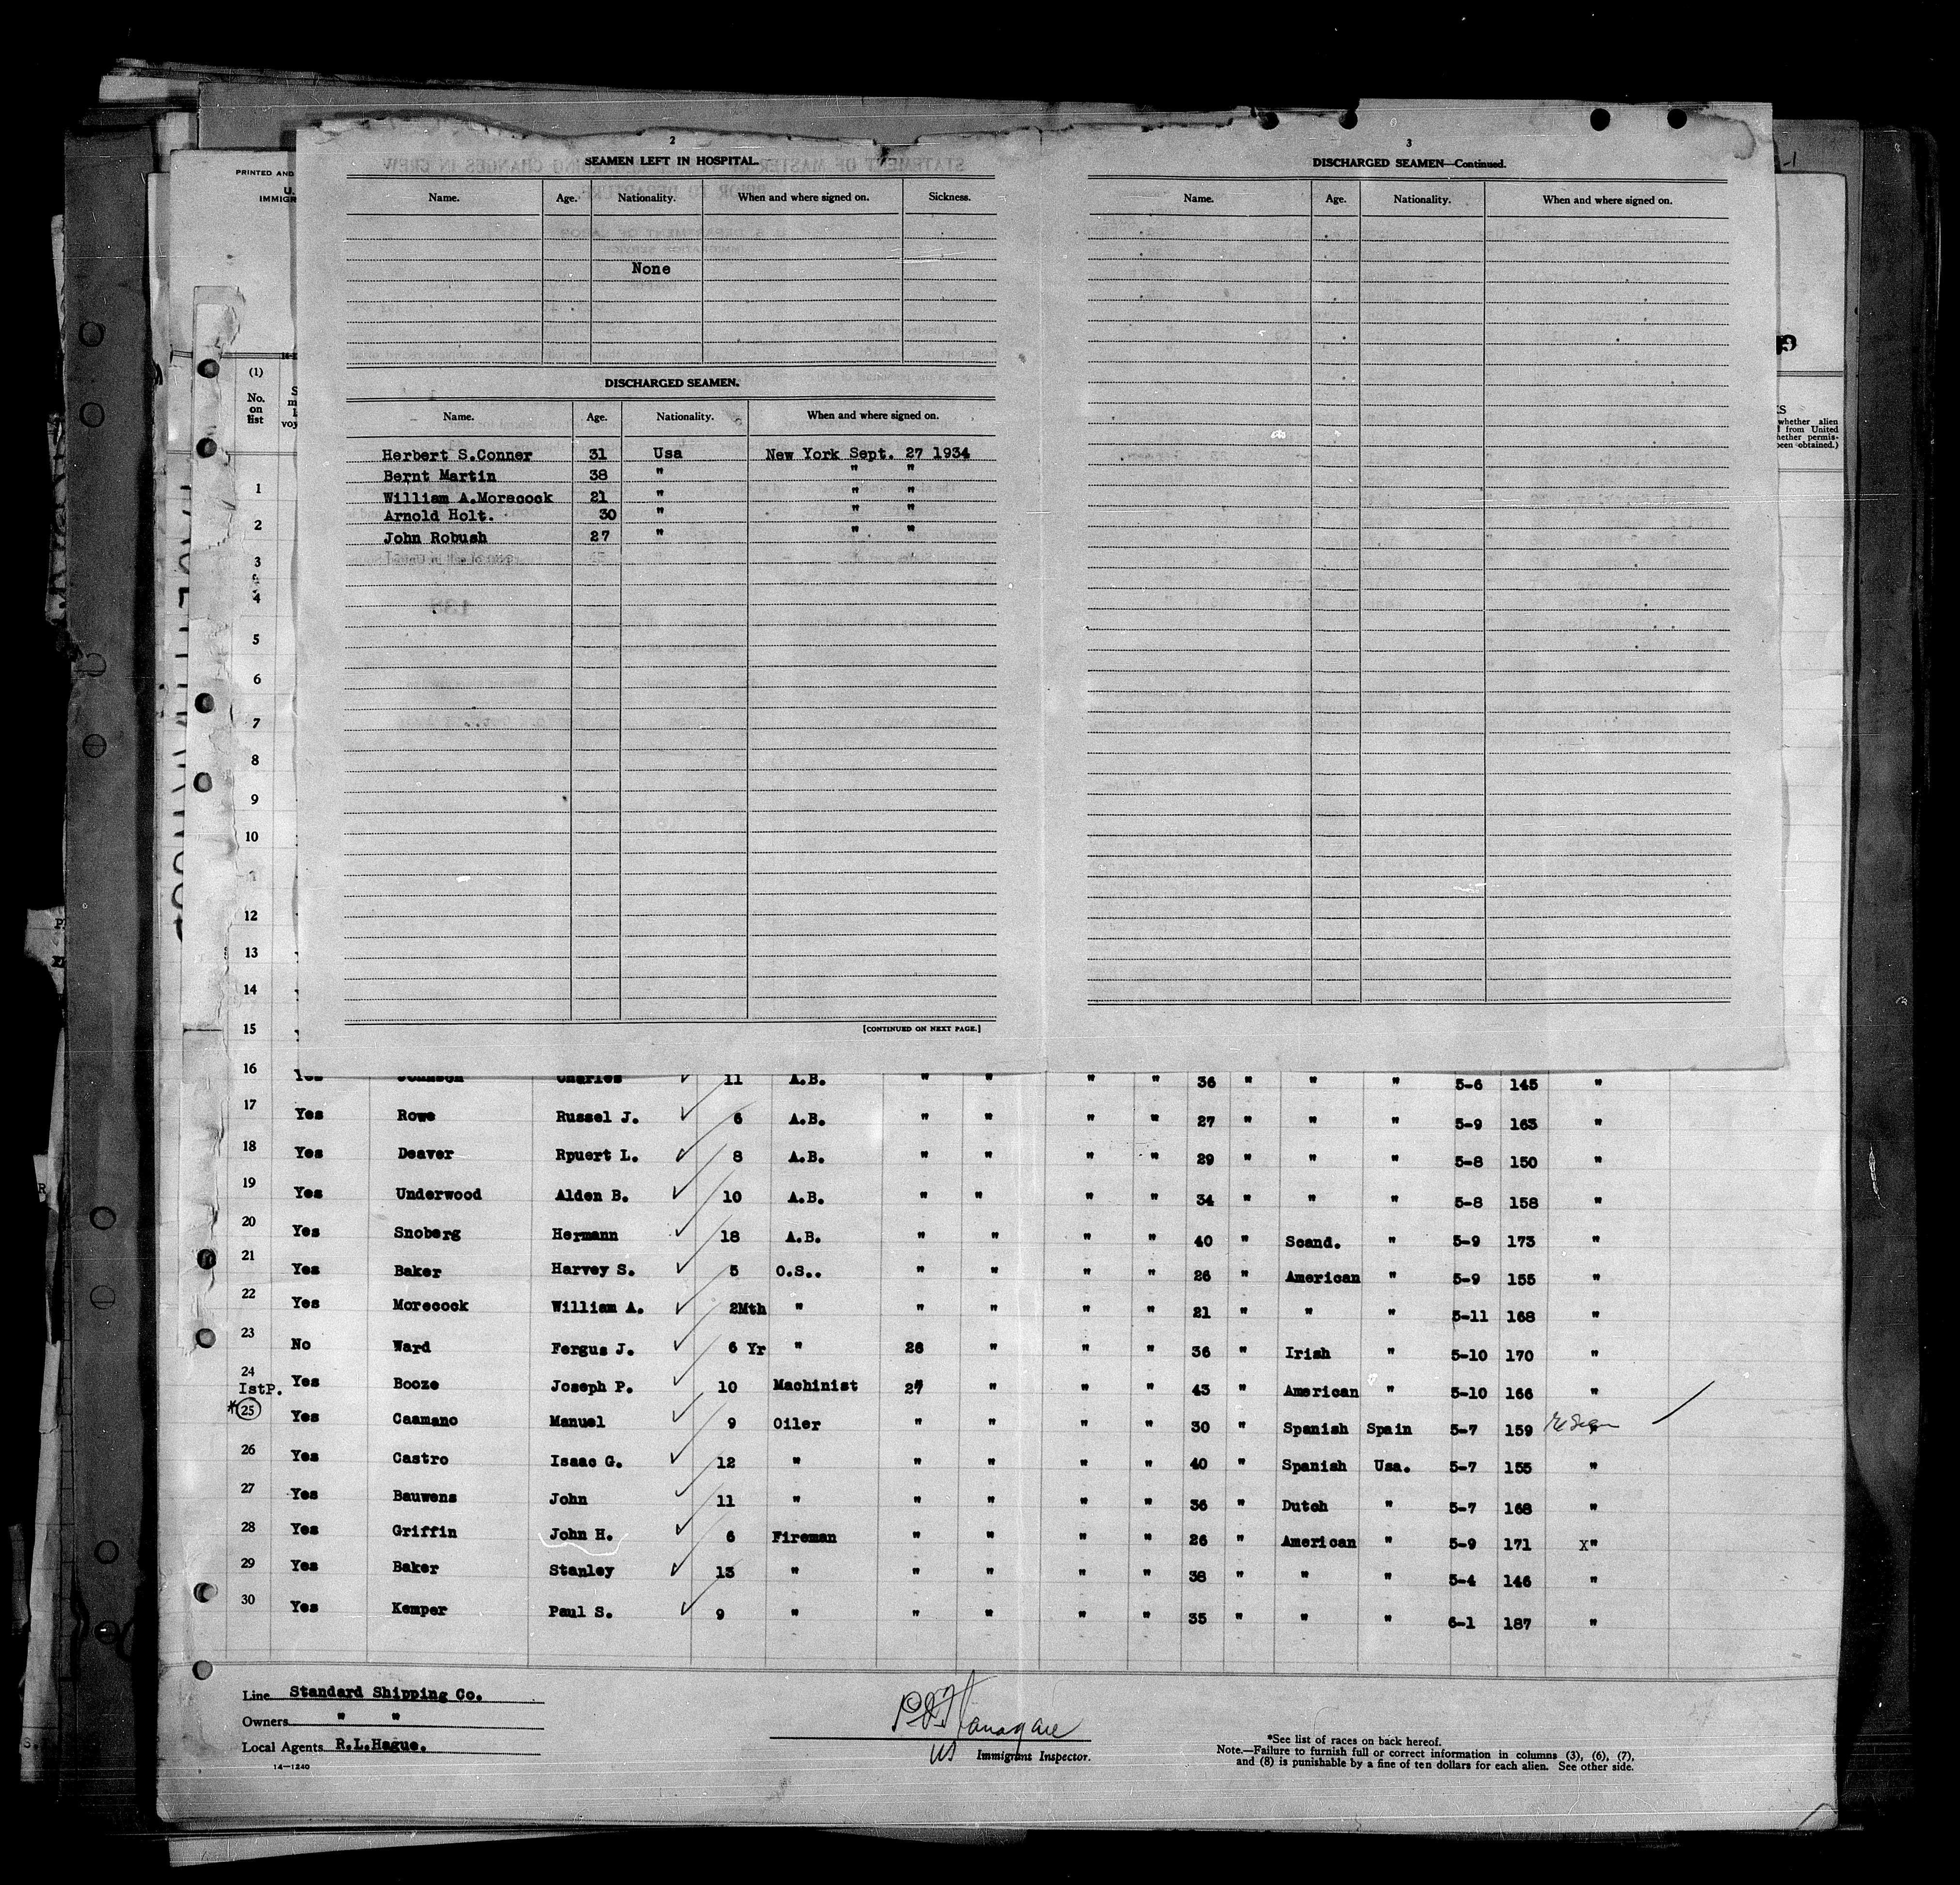 2
SEAMEN LEFT IN HOSPITAL.
Name. Age. Nationality. When and where signed on. Sickness.
None
DISCHARGED SEAMEN.
Name. Age. Nationality. When and where signed on.
Herbert S.Conner 31 Usa New York Sept. 27 1934
Bernt Martin 38 " " "
William A.Morecock 21 " " "
Arnold Holt. 30 " " "
John Robush 27 " " "
[CONTINUED ON NEXT PAGE.]
3
DISCHARGED SEAMEN—Continued.
Name. Age. Nationality. When and where signed on.
PRINTED AND
U.
IMMIGR
(1)
No.
on
list
whether alien
from United
whether permis-
been obtained.)
1
2
3
4
5
6
7
8
9
10
11
12
13
14
15
16 Yes Johnson Charles 11 A.B. " " " " 36 " " " 5-6 145 "
17 Yes Rowe Russel J. 6 A.B. " " " " 27 " " " 5-9 163 "
18 Yes Deaver Rpuert L. 8 A.B. " " " " 29 " " " 5-8 150 "
19 Yes Underwood Alden B. 10 A.B. " " " " 34 " " " 5-8 158 "
20 Yes Snoberg Hermann 18 A.B. " " " " 40 " Scand. " 5-9 173 "
21 Yes Baker Harvey S. 5 O.S.. " " " " 26 " American " 5-9 155 "
22 Yes Morecock William A. 2Mth " " " " " 21 " " " 5-11 168 "
23 No Ward Fergus J. 6 Yr " 28 " " " 36 " Irish " 5-10 170 "
24 Yes Booze Joseph P. 10 Machinist 27 " " " 43 " American " 5-10 166 "
IstP.
*25 Yes Caamano Manuel 9 Oiler " " " " 30 " Spanish Spain 5-7 159 "
26 Yes Castro Isaac G. 12 " " " " " 40 " Spanish Usa. 5-7 155 "
27 Yes Bauwens John 11 " " " " " 36 " Dutch " 5-7 168 "
28 Yes Griffin John H. 6 Fireman " " " " 26 " American " 5-9 171 X"
29 Yes Baker Stanley 13 " " " " " 38 " " " 5-4 146 "
30 Yes Kemper Paul S. 9 " " " " " 35 " " " 6-1 187 "
Line Standard Shipping Co.
Owners " "
Local Agents R.L.Hague.
14—1240
US Immigrant Inspector.
*See list of races on back hereof.
Note.—Failure to furnish full or correct information in columns (3), (6), (7),
and (8) is punishable by a fine of ten dollars for each alien. See other side.